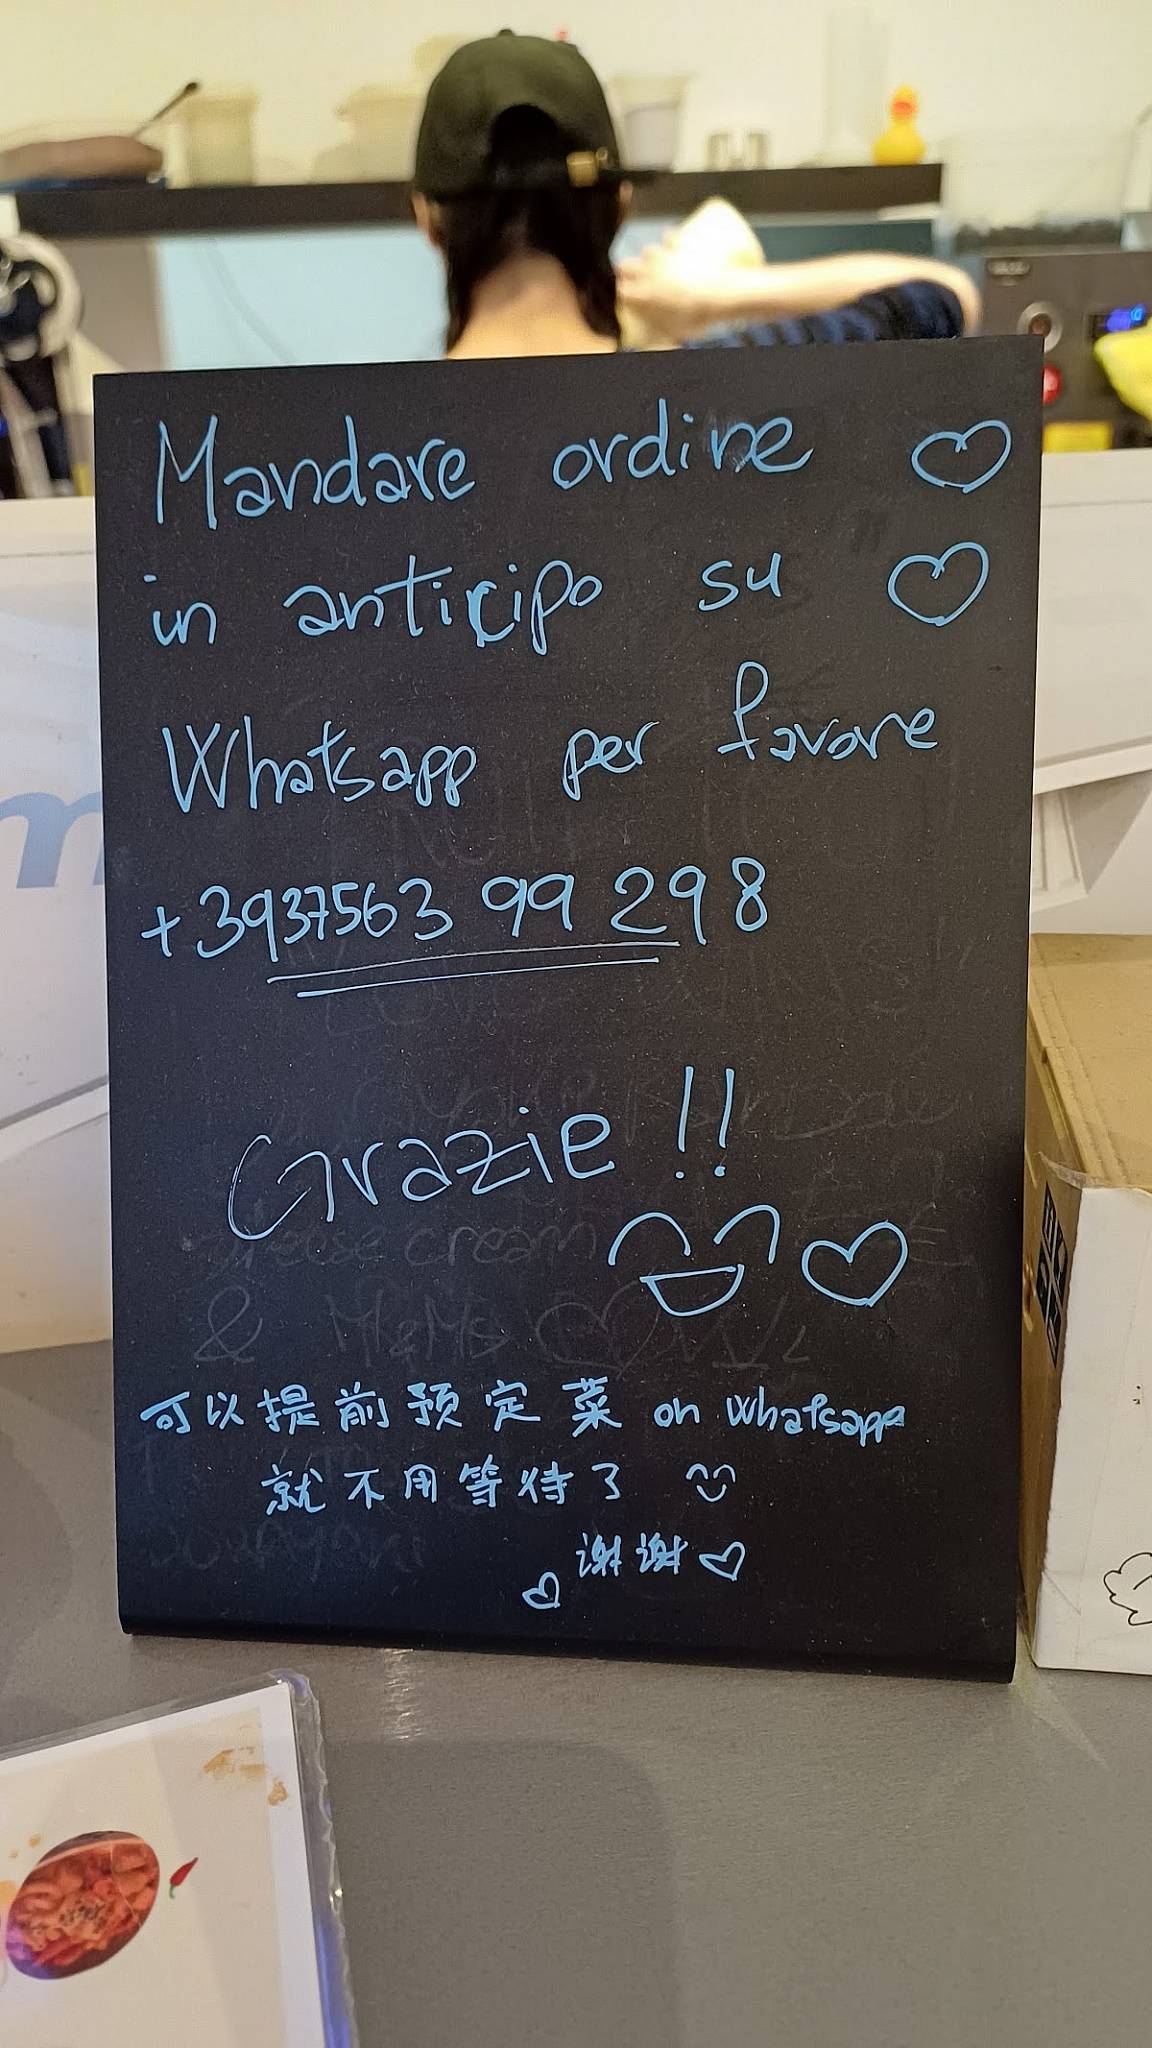 Mandare ordine
in anticipo su
Whatsapp per favore
+3937563 99 298
Grazie !!
cheese cream
& M&Ms
可以提前预定菜 on Whatsapp
就不用等待了
谢谢